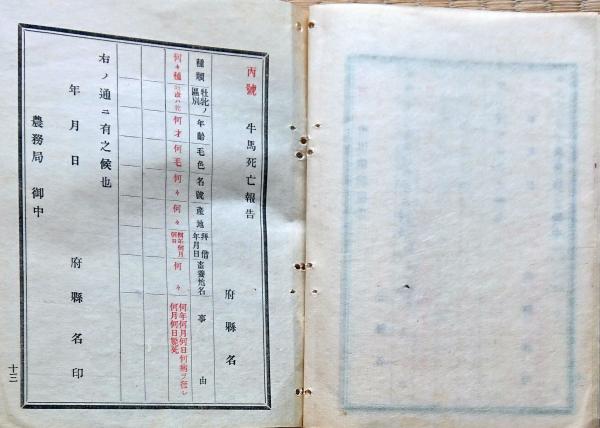 丙號 牛馬死亡報告
府縣名
種類 牡牝ノ區別 年齡 毛色 名號 產地 拜借年月日 畜養地名 事由
何々種 何才 何毛 何々 何々 何年何月何日 何々 何年何月何日何病ヲ發シ何月何日斃死
右ノ通ニ有之候也
年月日
府縣名印
農務局 御中
十三